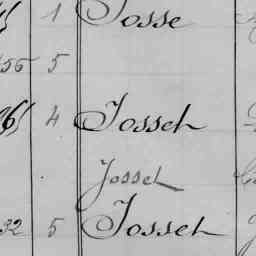 1 Josse
56 5
65 4 Jossel
Jossel
32 5 Jossel